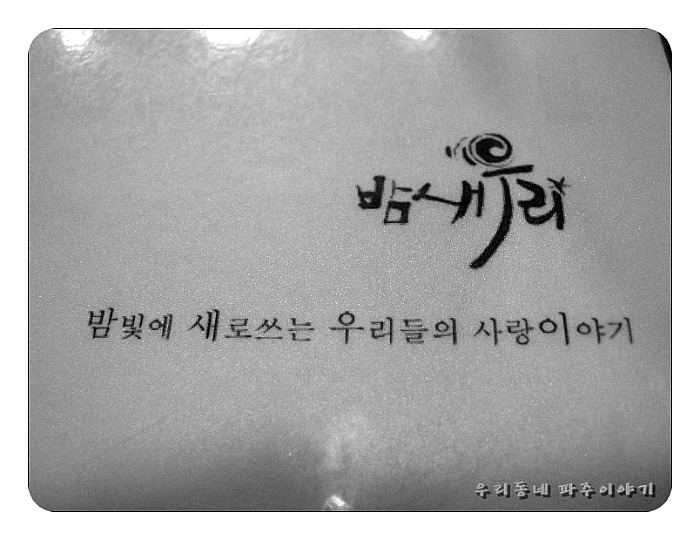 밤새우리
밤빛에 새로쓰는 우리들의 사랑이야기
우리동네 파주이야기